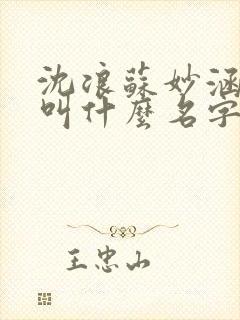 沈浪蘇妙涵
叫什麼名字
王忠山